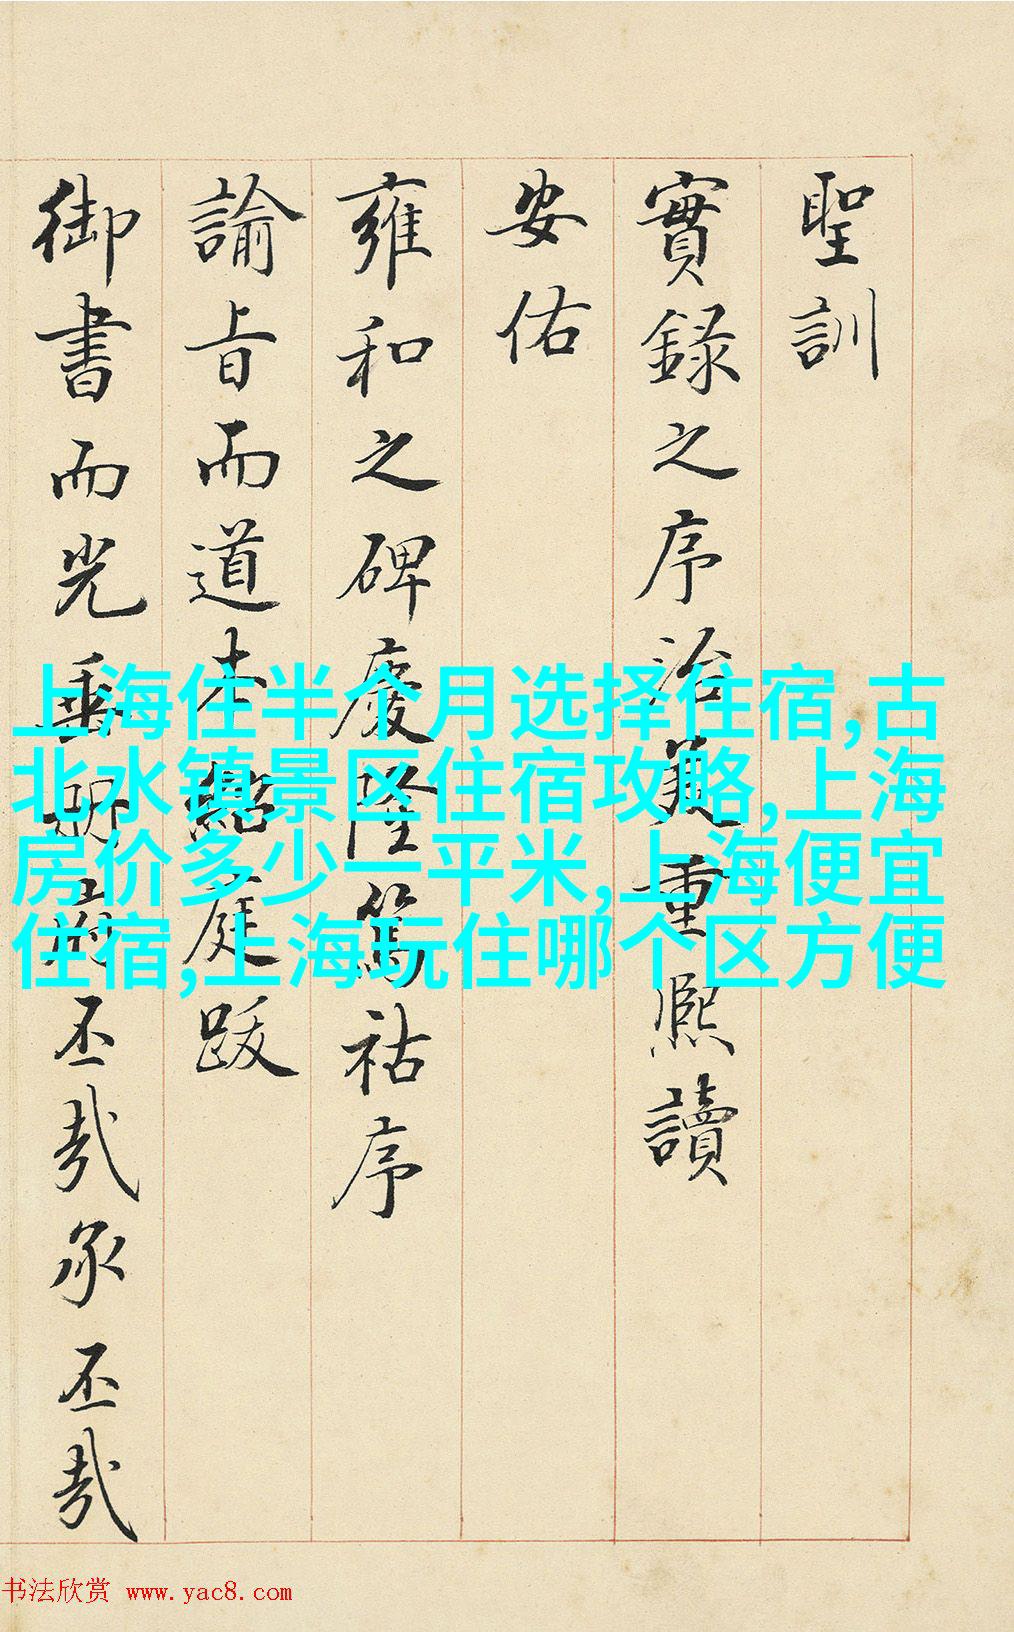 聖訓
實錄之序治重熈讀
安佑
雍和之碑慶隆篤祜序
諭旨而道本庭跋
御書而光垂丕哉承丕哉
上海住半个月选择住宿,古
北水镇景区住宿攻略,上海
房价多少一平米,上海便宜
住宿,上海玩住哪个区方便
书法欣赏 www.yac8.com